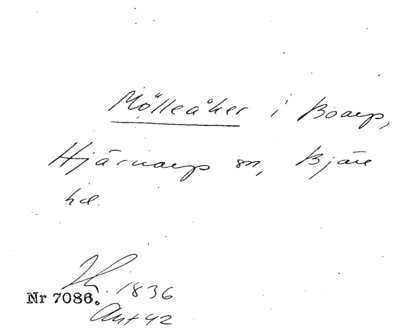 Mölleåker i Boarp,
Hjärnarp sn, Bjäre
hd.
1836
Nr 7086.
Ant 42